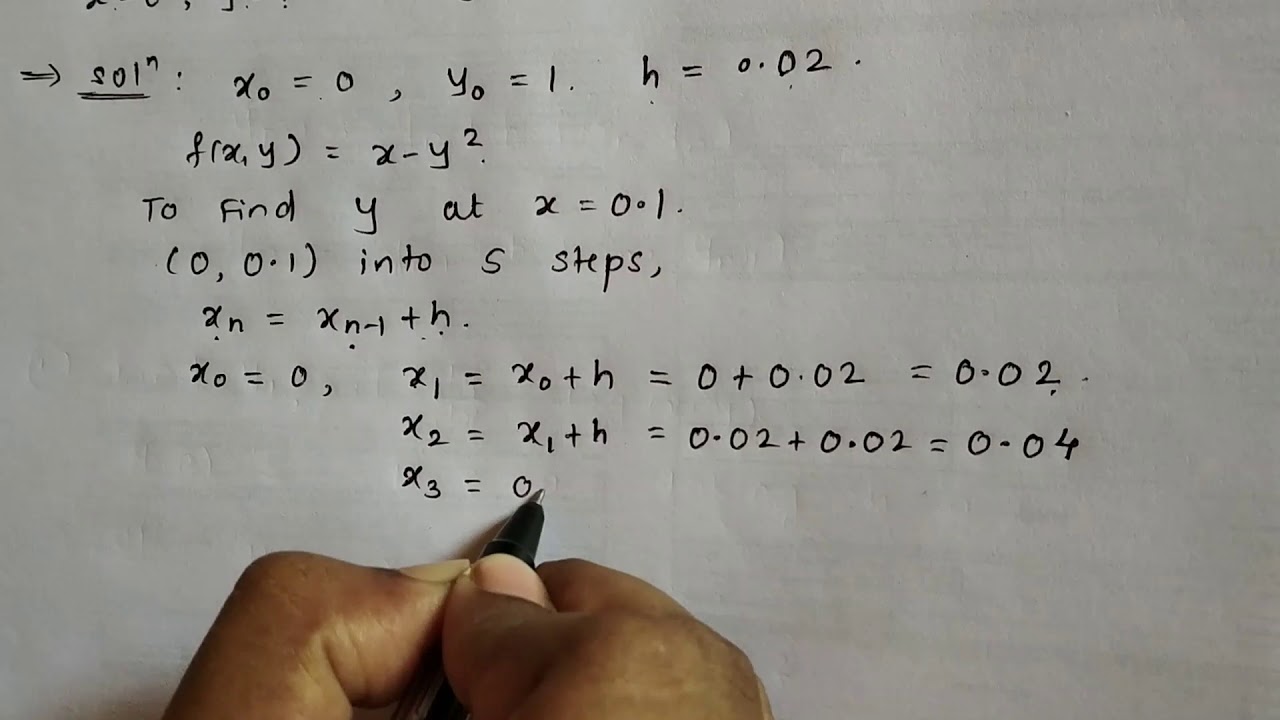 ⇒ solⁿ : x₀ = 0 , y₀ = 1. h = 0.02 .
f(x, y) = x - y².
To Find y at x = 0.1.
(0, 0.1) into 5 steps,
xₙ = xₙ₋₁ + h.
x₀ = 0, x₁ = x₀ + h = 0 + 0.02 = 0.02.
x₂ = x₁ + h = 0.02 + 0.02 = 0.04
x₃ = 0